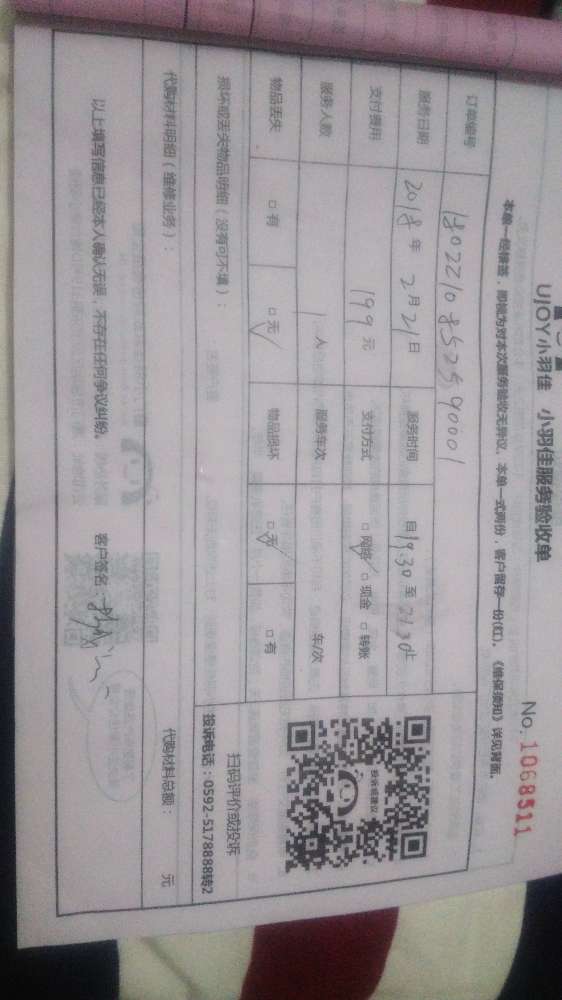 UJOY小羽佳 小羽佳服务验收单
No. 1068511
本单一经签签，即视为对本次服务验收无异议。本单一式两份，客户留存一份(红)。《维保须知》详见背面。
订单编号 180221085259001
服务日期 2018年2月21日 服务时间 自19:30至21:30止
支付费用 199元 支付方式 □网络 ✓ □现金 □转账
服务人数 1人 服务车次 车/次
物品丢失 □有 □无 ✓ 物品损坏 □无 ✓ □有
损坏或丢失物品明细（没有可不填）：
扫码评价或投诉
投诉电话：0592-5178888转2
代购材料明细（维修业务）：
代购材料总额： 元
以上填写信息已经本人确认无误，不存在任何争议纠纷。 客户签名：
投诉或建议